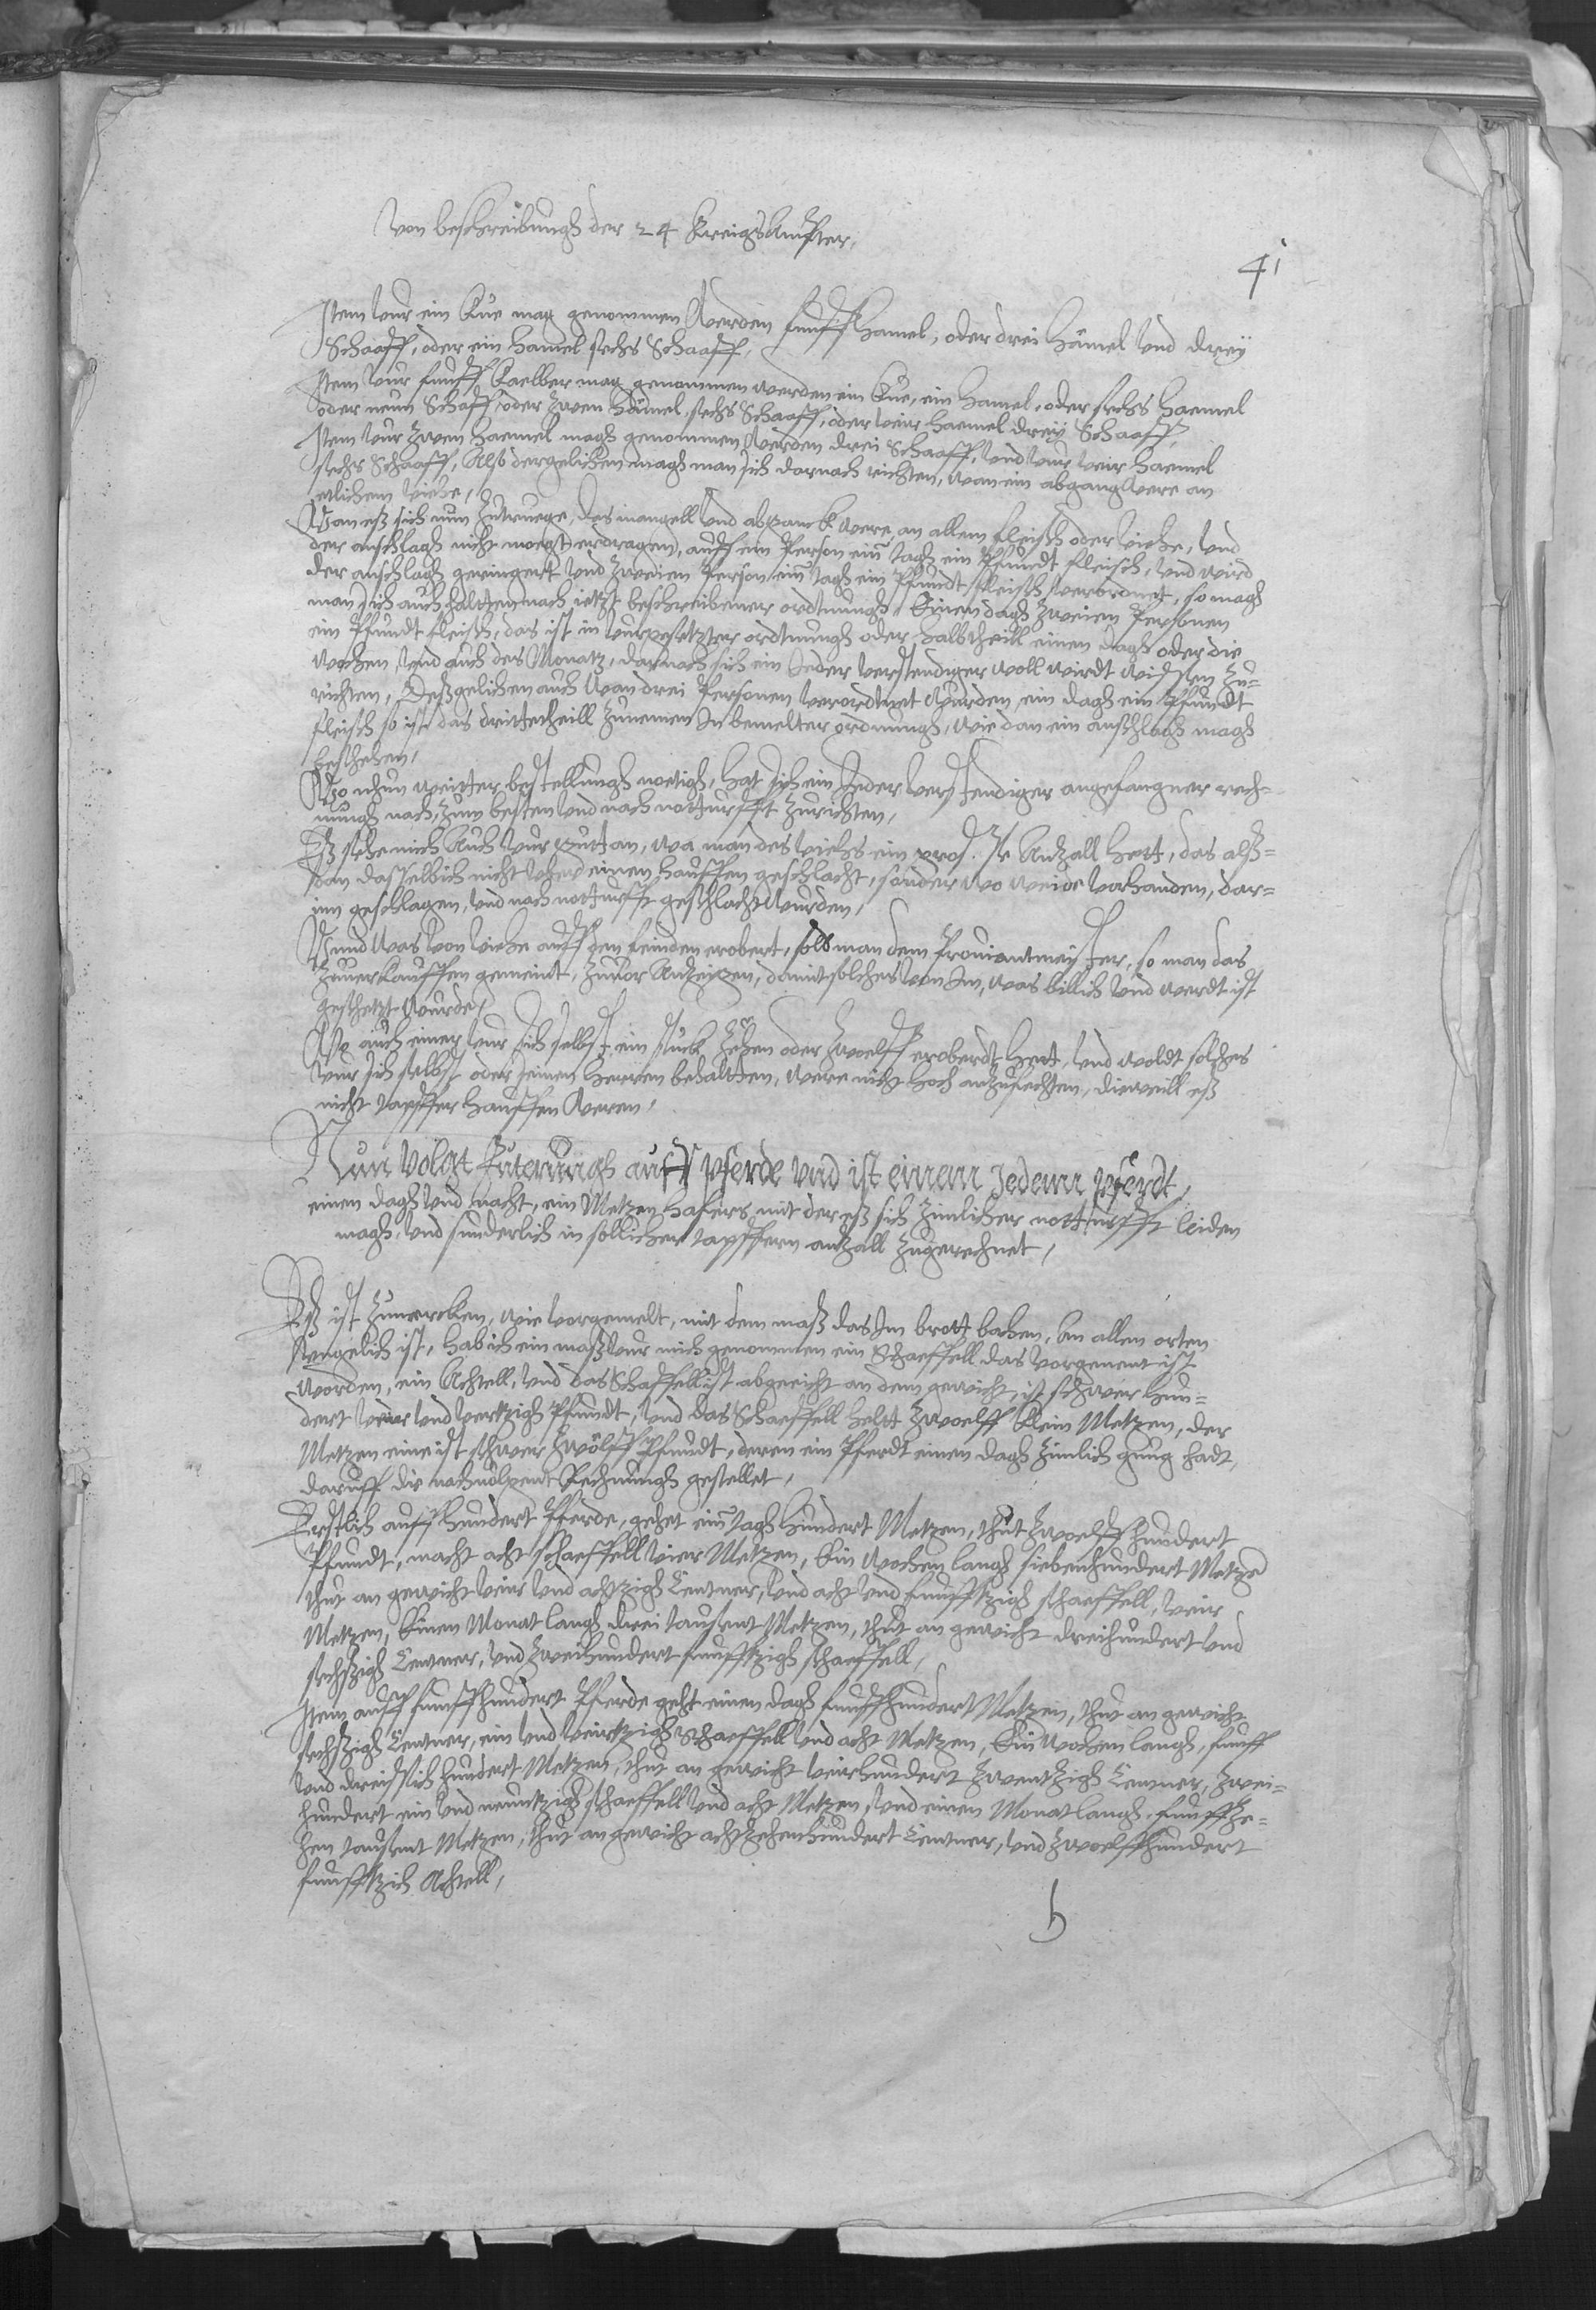 Von beschreibungh der 24 Kreigs Ampter,
41
Item vur ein Kue mag genommen werden funff hamel, oder drei hämel und dreÿ
Schaaff, oder ein hamel sechs Schaaff,
Item vur funff Kaelber mag genommen werden ein Kue, ein hamel, oder sechs haemel
oder neun Schaff, oder zwen hämel, sechs Schaaff, oder veir haemel dreÿ Schaaff,
Item vur zwen haemel magh genommen werden drei Schaaff, und vur veir haemel
sechs Schaaff, Also dergelichen magh man sich darnach richten, wan ein abgang were an
etlichem viehe,
Wan eß sich nun zutruege, das mangell und abganck were an allem fleisch oder viehe, und
der anschlagh nicht moegt erdragen, auff ein Person ein tagh ein Pfundt fleisch, und wird
der anschlagh geringert und zweien Person ein tagh ein Pfundt fleisch verordnet, so magh
man sich auch haltten nach ietzt beschreibener ordtnungh, Einen dagh zweien Personen
ein Pfundt fleisch, das ist in vurgesetzter ordtnungh oder halbtheill einen dagh oder die
wochen und auch des Monatz, darnach sich ein Jeder verstendiger woll wirdt wissen zu=
richten, Deßgelichen auch wan drei Personen verordtnet wurden ein dagh ein Pfundt
fleisch so ist das drittetheill zunemen In bemelter ordnungh, wie dan ein anschlagh magh
beschehen,
Wo nhun weitter bestellungh noetigh, hat sich ein Jeder verstendiger angefangner rech=
nungh nach, zum besten und nach notturfft zurichten,
Eß sehe mich Auch vur gutt an, wa man des viehs ein Anzall hett, das alß=
dan dasselbich nicht uber einen hauffen geschlacht, sonder wo weide vorhanden, dar=
inn geschlagen, und nach notturfft geschlacht wurden,
Wund was von viehe auff den feinden erobert, soll man dem Proviantmeister, so man das
zuverkauffen gemeint, zuvor Anzeigen, damit solches von Im, was billich und werdt ist
geschetzt wurde,
Wo auch einer vur sich selbst ein stuck zehen oder zwoelff eroberdt hett, und woldt solches
vur sich selbst oder seinen herren behaltten, were nicht hoch anzufechten, dieweill eß
nicht tapffer hauffen weren,
Nun volgt Futerungh auff pferde und ist einem Jedem pferdt,
einen dagh und nacht, ein Metzen hafers mit der eß sich zimlicher notturfft leiden
magh, und sunderlich in sollicher tapffern anzall zugerechnet,
Eß ist zumercken, wie vorgemelt, mit dem maß das Im brott bachen, an allen orten
ungelich ist, hab ich ein maß vur mich genommen ein Schaeffell das vorgenent ist
worden, ein Achtell, und das Schaffell ist abgeeicht an dem gewicht, ist schwer hun=
dert veier und vertzigh Pfundt, und das Schaeffell heltt zwoelff klein Metzen, der
Metzen eine ist schwer zwölff Pfundt, deren ein Pferdt einen dagh zimlich gnug hadt,
daruff die nachvolgent Rechnungh gestellet,
Erstlich auff hundert Pferde, gehet ein tagh hundert Metzen, thut zwoelff hundert
Pfundt, macht acht schaeffell vier Metzen, Ein wochen langh siebenhundert Metzen
thut an gewicht veir und achtzigh Centner, und acht und funfftzigh schaeffell, veir
Metzen, Einen Monat langh drei tausent Metzen, thut an gewicht dreihundert und
sechszigh Centner, und zweihundert funfftzigh schaeffell,
Item auff funffhundert Pferde geht einen dagh funffhundert Metzen, thut an gewicht
sechszigh Centner, ein und veirtzigh Schaeffell und acht Metzen, Ein wochen langh, funff
und dreisslich hundert Metzen, thut an gewicht veirhundert zwentzigh Centner, zwei=
hundert ein und neuntzigh schaeffell und acht Metzen, und einen Monat langh funffze=
hen tausent Metzen, thut an gewicht achtzehenhundert Centner, und zwoelffhundert
funfftzich Achtell,